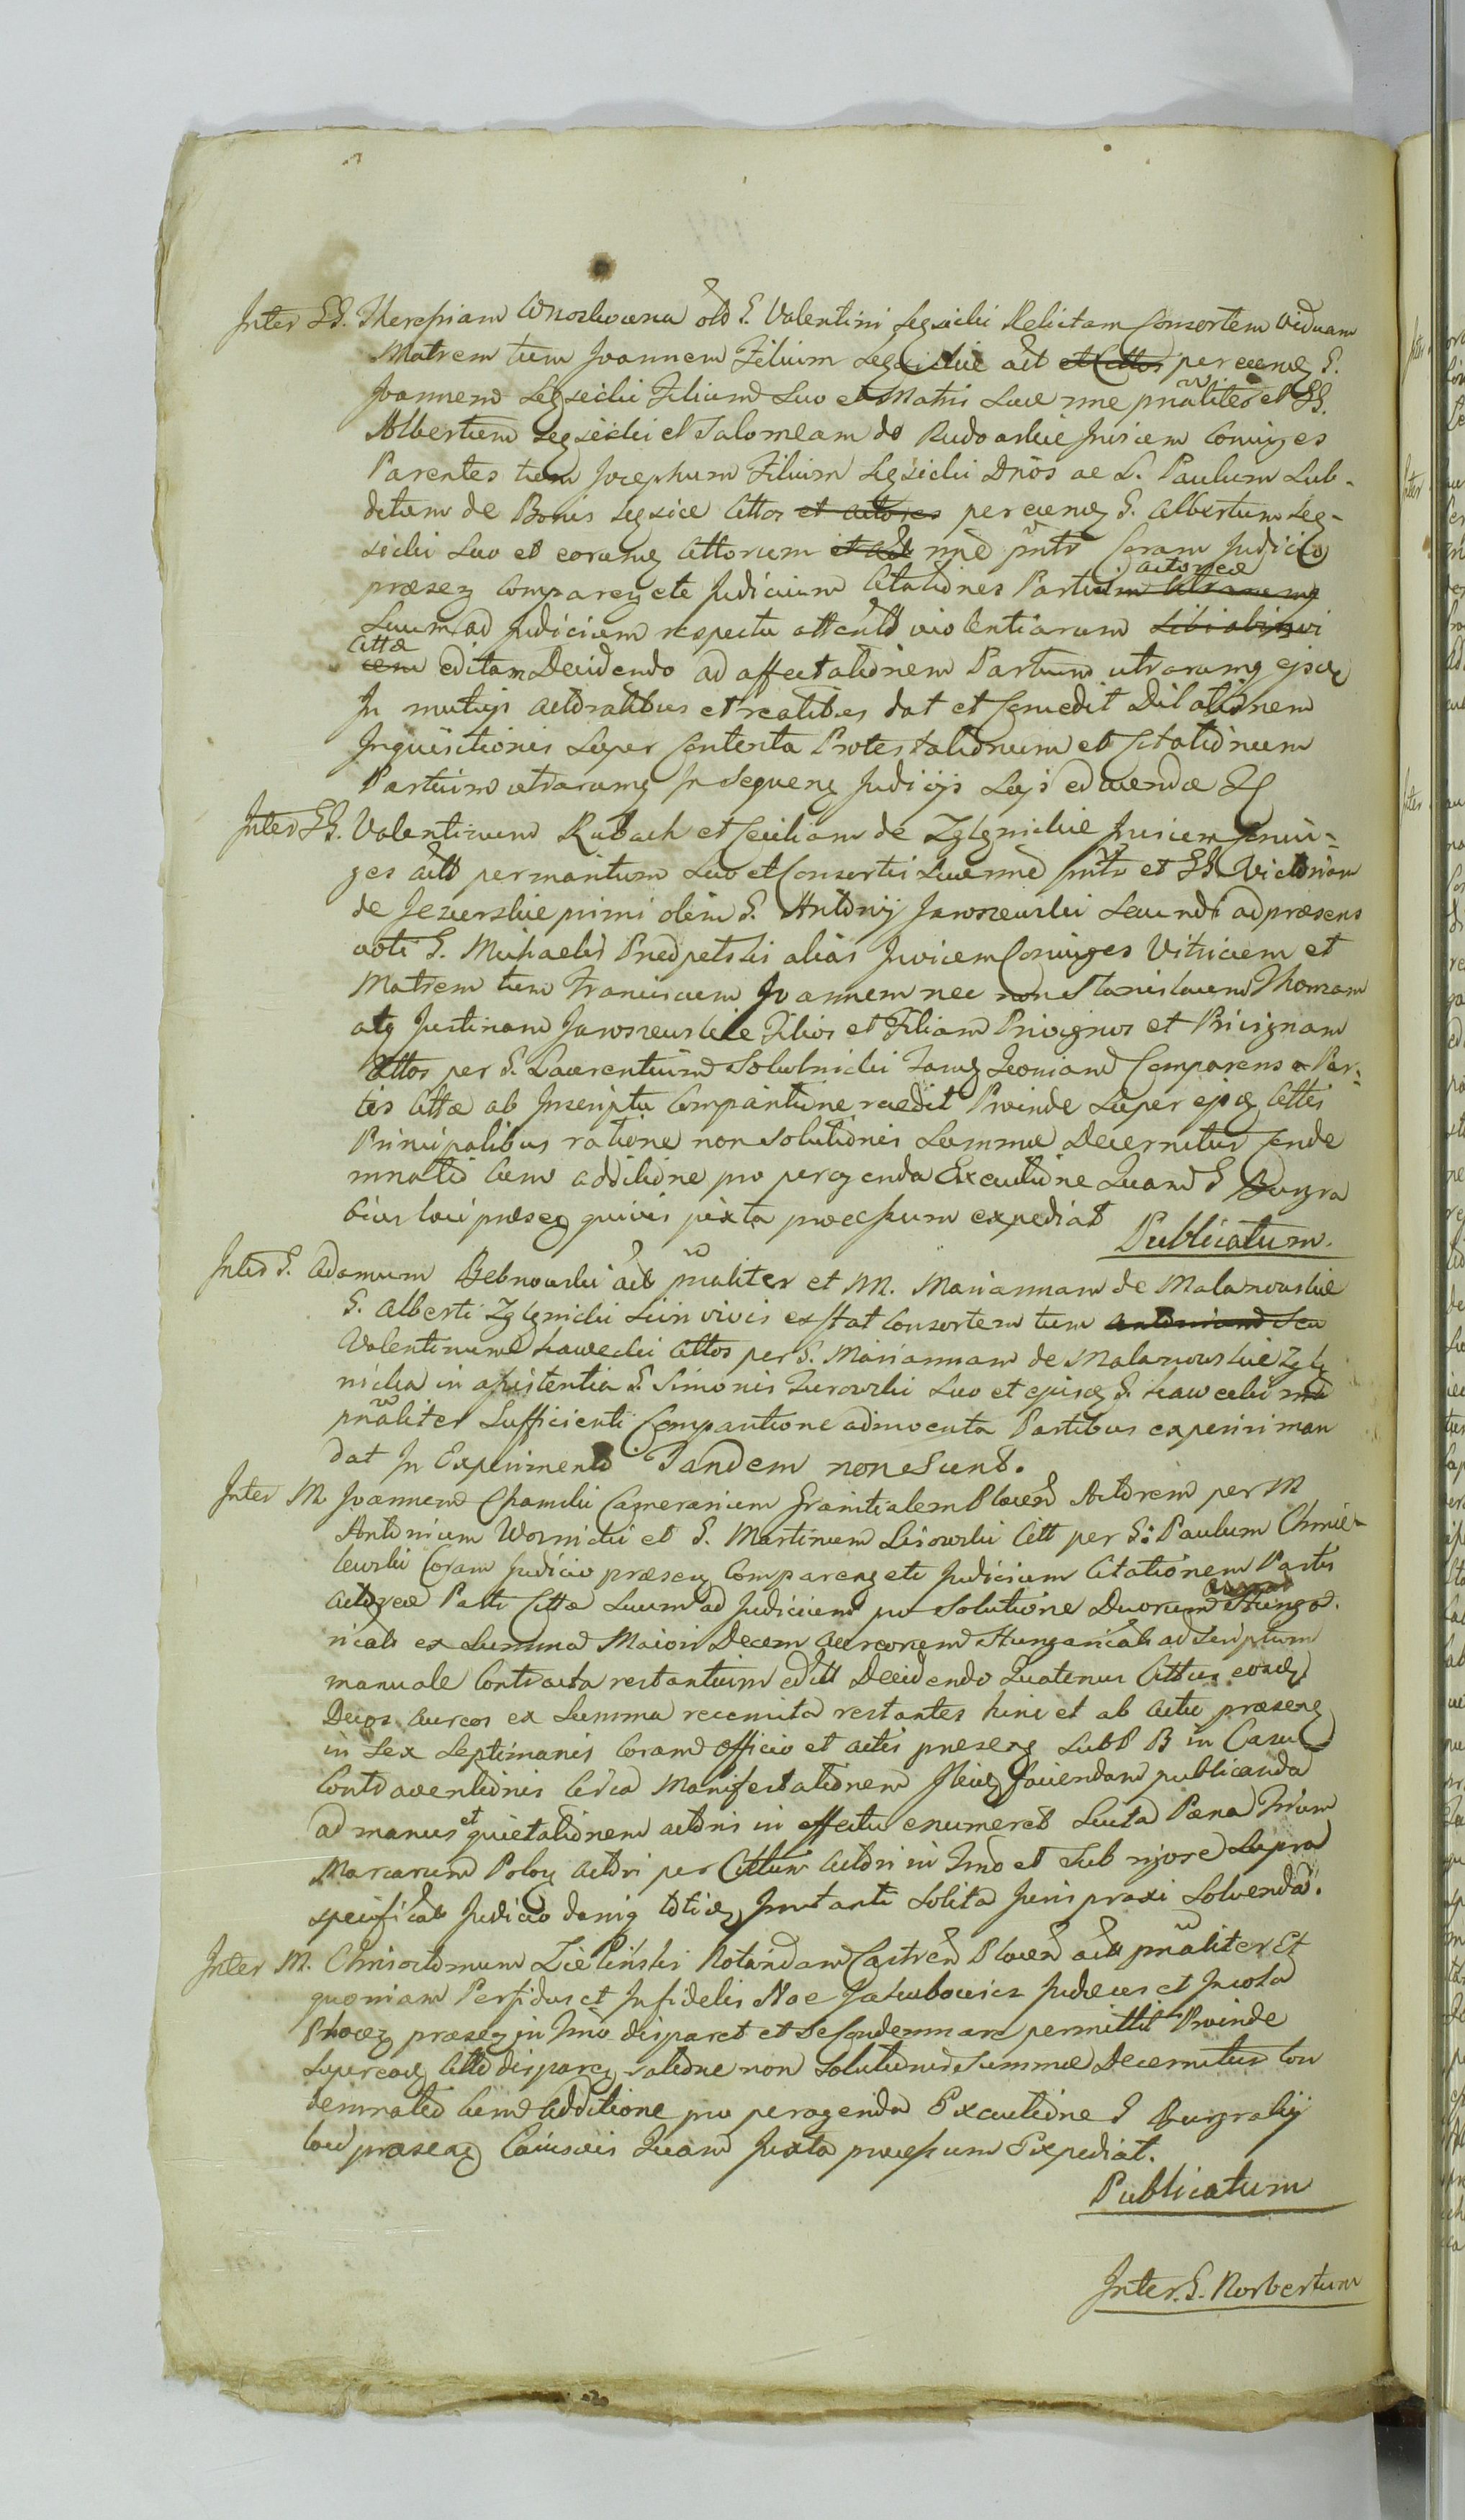 Inter GG. Theresiam Wnorkowna olo G. Valentini Legsicki Relictam Consortem viduam
Matrem tum Joannem Filium Legsickie act et Cittos per eumq G.
Joannem Legsicki Filium Suo et Matris Suae nne pnaliter et GG.
Albertum Legsicki et Salomeam de Rudowskie Invicem Coniuges
Parentes tum Josephum Filium Legsicki Dnos ac L. Paulum Sub-
ditum de Bonis Legsice Cittos et actores per eumq G. Albertum Leg-
sicki Suo et eorumq Cittorum et act nne pntr Coram Judicio
praeseq Compareq ete Judicium Citationes Partium actoreae utrarumq
Suum ad Judicium respectu attent violentiarum sibi abinvi
Cittae cem editam Decidendo ad affectationem Partium utrarumq ejusq
In mutuji actoratibus et reatibus dat et Concedit Dilationem
Inquisitionis Super Contenta Protestationum et Citationum
Partium utrarumq In Sequenq Judicijs Legi educenda
Inter GG. Valentinum Rubach et Ceciliam de Zglenickie Invicem Coniu-
ges act per maritum Suo et Consortis Suae nne pntr et GG. Victoriam
de Jezewskie primi olim G. Antonij Jaroszewski Secundi ad praesens
voti G. Michaelis Predpelski alias Invicem Coniuges Vitricum et
Matrem tum Franciscum Joannem nec non Stanislaum Thomam
atq Justinam Jaroszewskie Filios et Filiam Privignos et Privignam
Cittos per G. Laurentium Solotnicki Comparens a Par-
tis Cittae ab Inscriptu Comparitione recedit Proinde Super ejsq Cittis
Principalibus ratione non Solutionis Summae Decernitur Conde
mnatio Cum additione pro peragenda Executione Quam G Burgra
bius loci praeseq quivis juxta processum expediat
Publicatum.
Inter G. Adamum Bebnowski act pnaliter et M. Mariannam de Malanowskie
G. Alberti Zglenicki Si in vivis exstat Consortem tum Antonium Seu
Valentinum Hawecki Cittos per G. Mariannam de Malanowskie Zgle
nicka in assistentia G. Simonis Turowski Suo et ejusq G. Hawecki nne
pnaliter Sufficienti Comparitione adinventa Partibus experiri man
dat In Experimento Tandem non Sunt.
Inter M. Joannem Chamski Camerarium Granitialem Plocen Actorem per M
Antonium Woznicki et G. Martinum Lisowski Citt per G: Paulum Chmie-
lewski Coram Judicio praeseq Compareq ete Judicium Citationem Partis
Actoreae Parti Cittae Suum ad Judicium pro Solutione Duorum Aureor Hunga
ricali ex Summa Maiori Decem Aureorum Hungarical ad Scriptum
manuale Contracta restantium edit Decidendo Quatenus Cittus eosdq
Duos Aureos ex Summa recensita restantes hinc et ab actu praeseq
in Sex Septimanis Coram Officio et actis praeseq Sub P B in Casu
Contraventionis Circa Manifestationem Ibiq faciendam publicanda
ad manus et quietationem actoris in effectu enumeret Luita Paena Trium
Marcarum Polog actori per Cittum actori in Tno et Sub rigore Supra
specificat Judicio deniq totiq Instanti Solita Juris praxi Solvenda.
Inter M. Chrisostomum Zielinski Notarium Castren Plocen act pnaliter Et
quoniam Perfidus et Infidelis Noe Jakubowicz Judaeus et Incola
Plocq praeseq in Tno disparet et Se Condemnare permittit Proinde
Super eoq Citto disparq ratione non Solutionis Summae Decernitur Con
demnatio Cum Additione pro peragenda Executione G Burgrabij
loci praeseq Cuiusvis Quam Juxta processum Expediat.
Publicatum
Inter. G. Norbertum